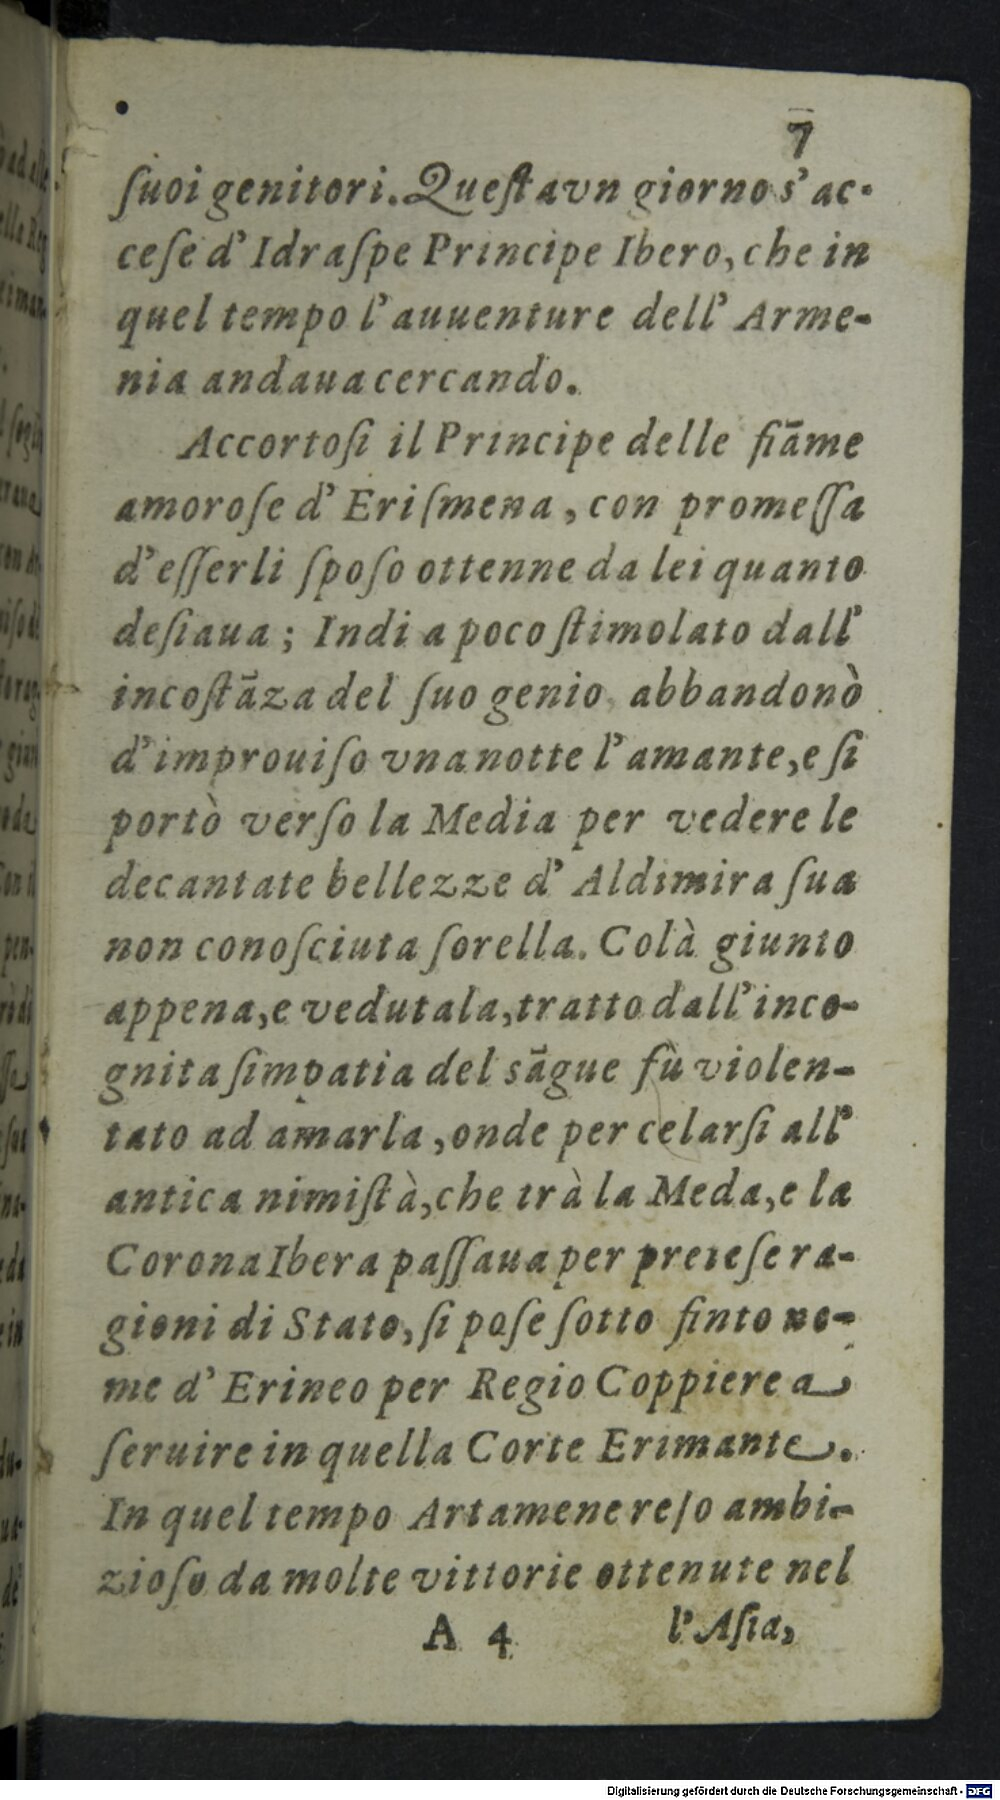 7
ſuoi genitori. Queſta vn giorno s' ac-
ceſe d' Idraſpe Principe Ibero, che in
quel tempo l' auuenture dell' Arme-
nia andaua cercando.
Accortoſi il Principe delle fiãme
amoroſe d' Eriſmena, con promeſſa
d' eſſerli ſpoſo ottenne da lei quanto
deſiaua; Indi a poco ſtimolato dall'
incoſtãza del ſuo genio, abbandonò
d' improuiſo vna notte l' amante, e ſi
portò verſo la Media per vedere le
decantate bellezze d' Aldimira ſua
non conoſciuta ſorella. Colà giunto
appena, e vedutala, tratto dall' inco-
gnita ſimpatia del sãgue fù violen-
tato ad amarla, onde per celarſi all'
antica nimiſtà, che trà la Meda, e la
Corona Ibera paſſaua per preteſe ra-
gioni di Stato, ſi poſe ſotto finto no-
me d' Erineo per Regio Coppiere a
ſeruire in quella Corte Erimante.
In quel tempo Artamene reſo ambi-
zioſo da molte vittorie ottenute nel
A 4 l' Aſia,
Digitalisierung gefördert durch die Deutsche Forschungsgemeinschaft - DFG